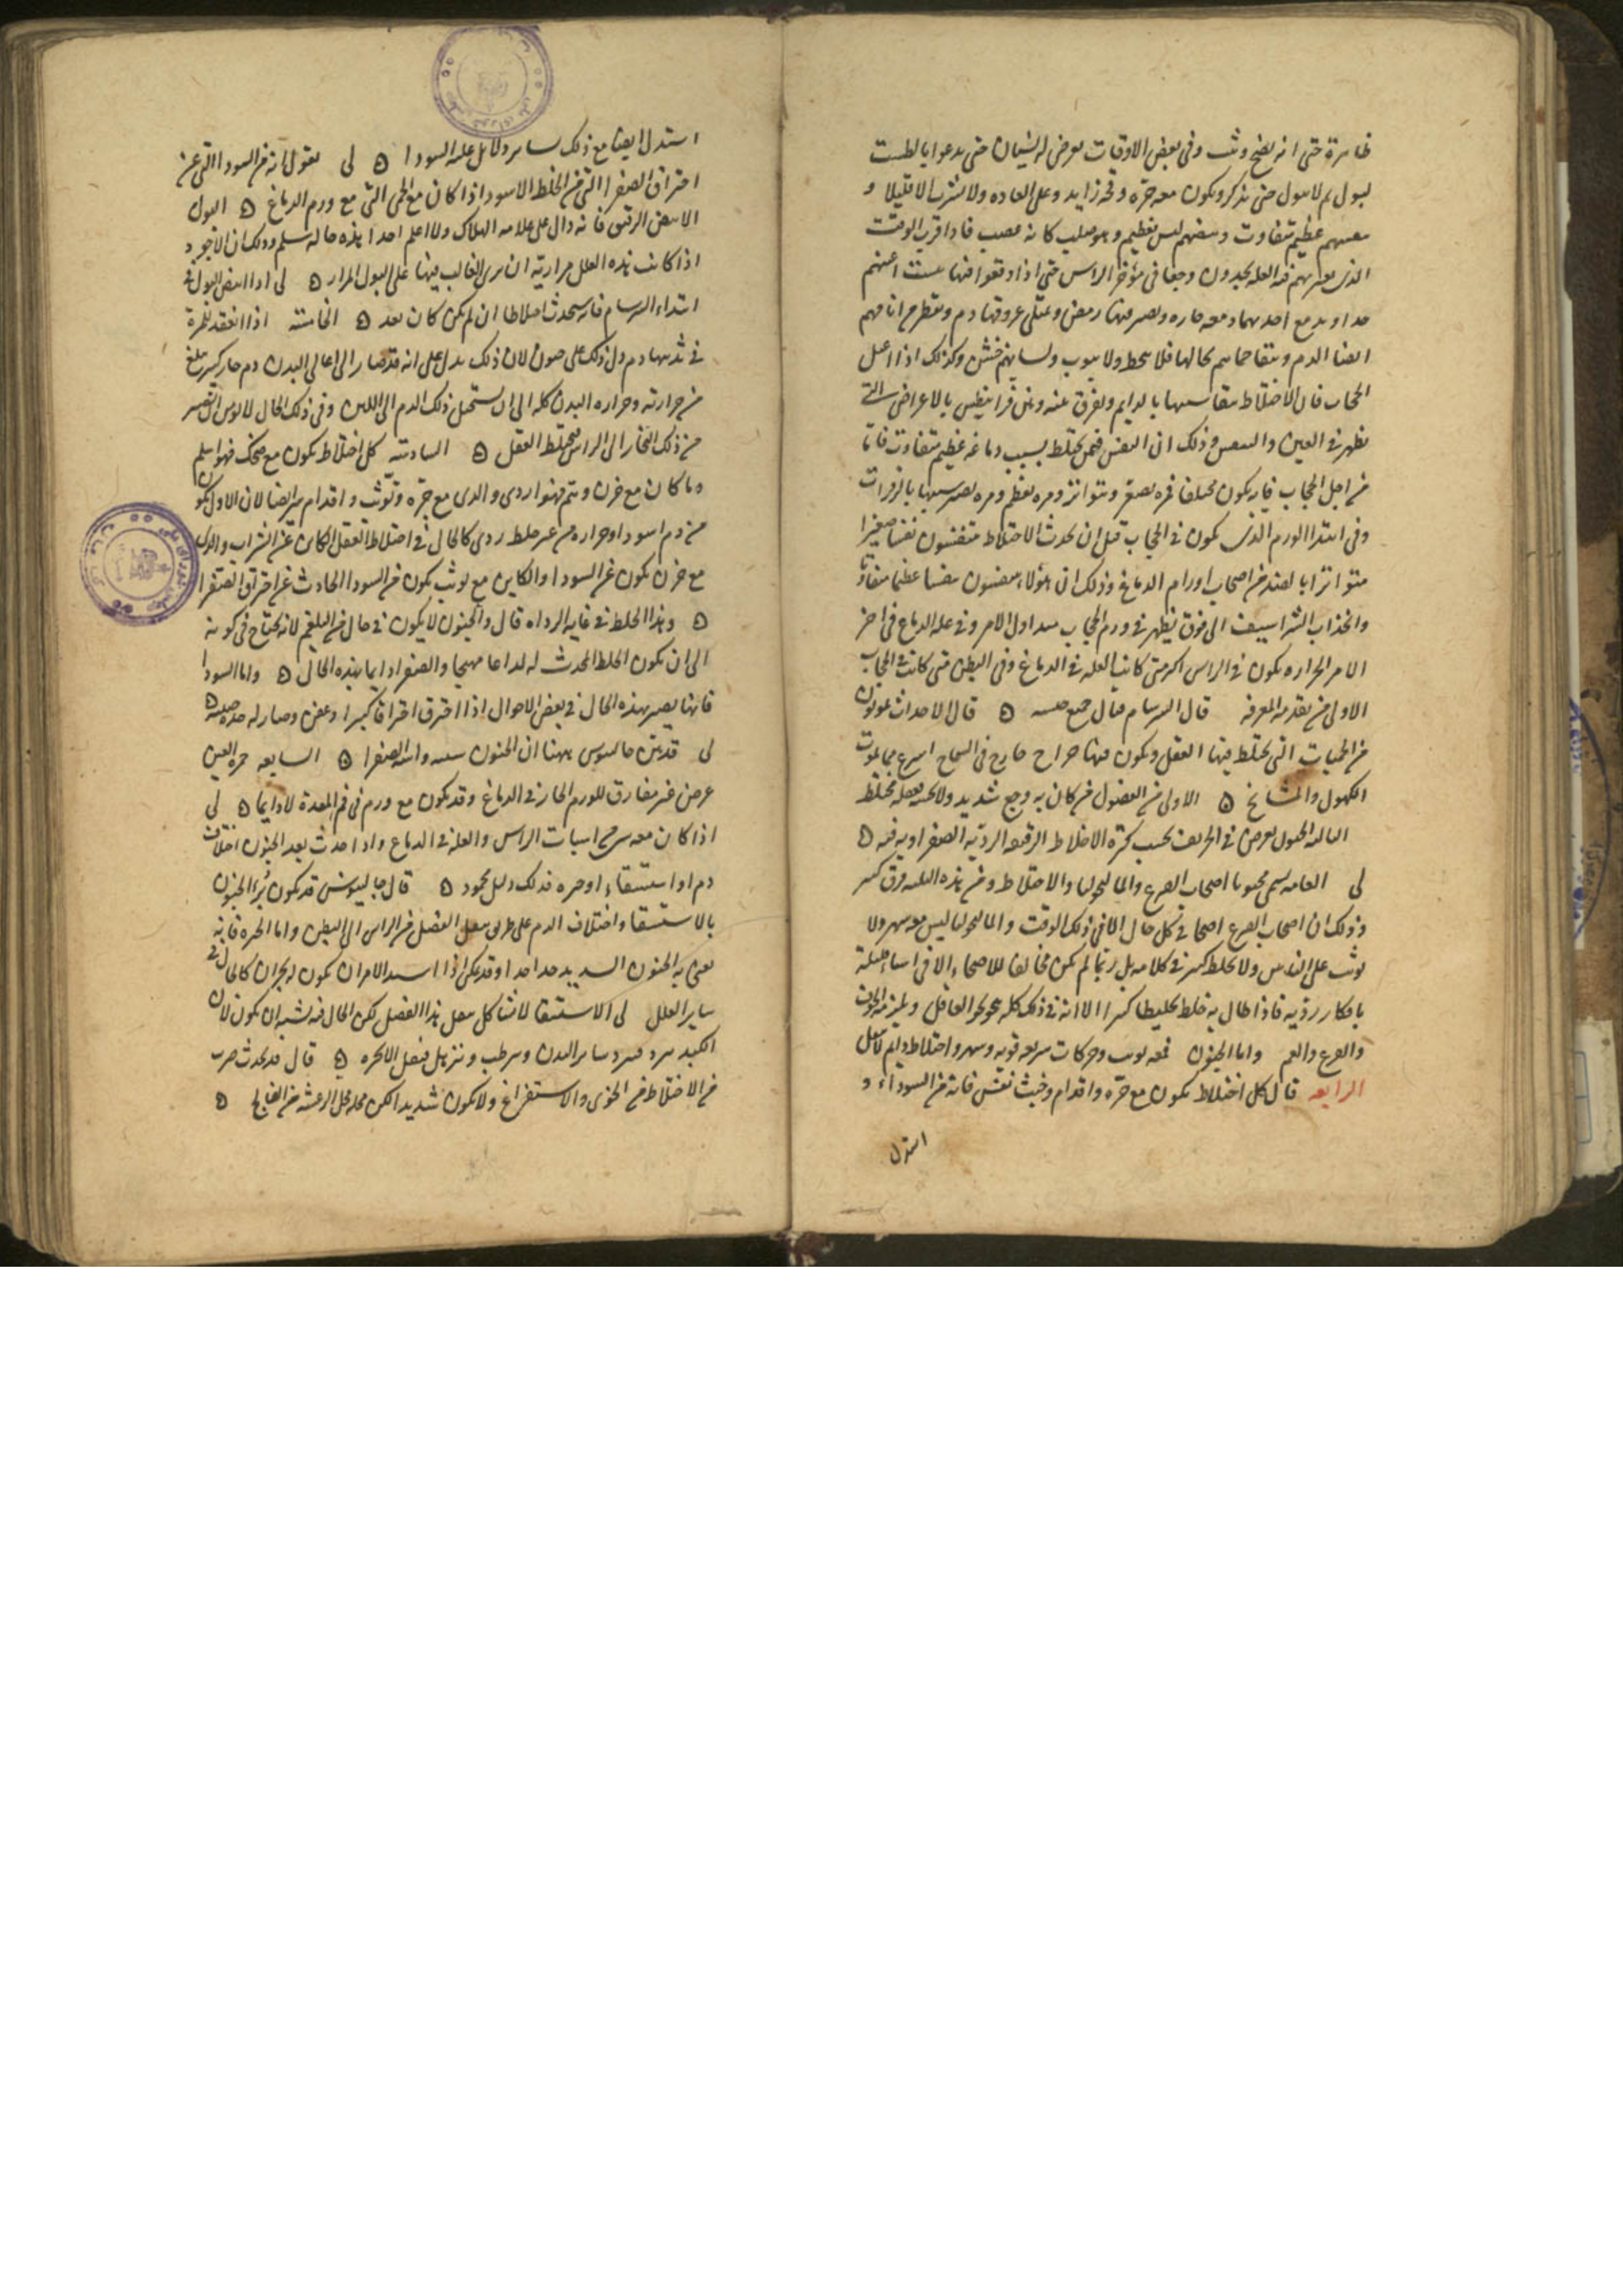 ظاهرة حتى انه يصيح وثب وفى بعض الاوقات يعرض له نسيان حتى يدعوا بالطست
ليبول ثم لا يبول حتى يذكر ويكون معه جرٔه وقحه زايد وعلى العاده ولا يشرب الا قليلا و
نفسهم عظيم متفاوت ونبضهم ليس بعظيم وهو صلب كانه عصب فاذا قرب الوقت
الذى يعتريهم فيه العله يجدون وجعا فى مؤخر الراس حتى اذا وقعوا فيها يبست اعينهم
جدا ويدمع احديهما دمعه حاره ويصير فيها رمص وتمتلى عروقها دم ويقطر من انافهم
ايضا الدم وتبقا حماهم بحالها فلا تنحط ولا تنوب ولسانهم خشن وكذلك اذا اعتل
الحجاب فان الاختلاط بالدايم ويفرق بينه وبين فرانيطس بالاعراض التى
تظهر فى العين والتنفس وذلك ان النفس فيمن يختلط بسبب دماغه عظيم متفاوت فاما
من اجل الحجاب فانه يكون مختلفا فمره يصغر ويتواتر ومره يعظم ومره يصير شبيها بالزفرات
وفى ابتدا الورم الذى يكون فى الحجاب قبل ان يحدث الاختلاط يتنفسون نفسا صغيرا
متواترا بالضد من اصحاب اورام الدماغ وذلك ان هؤلاء يتنفسون نفسا عظيما متفاوتا
وانجذاب الشراسيف الى فوق يظهر فى ورم الحجاب منذ اول الامر وفى علة الدماغ فى اخر
الامر الحراره يكون فى الراس اكثر متى كانت العله فى الدماغ وفى البطن متى كانت فى الحجاب
الاولى من تقدمة المعرفه قال السرسام قتال خبيث قال الاحداث يموتون
من الحميات التى يختلط فيها العقل ويكون فيها خراج خارج فى السماخ اسرع مما يموت
الكهول والمشايخ الاولى من الفصول من كان به وجع شديد ولا يحسه فعقله مختلط
الثالثه الجنون يعرض فى الخريف بحسب كثرة الاخلاط الرقيقه الرديه الصفراويه فيه
لى العامه يسمى مجنونا اصحاب الصرع والماليخوليا والاختلاط ومن هذه الثلثه فرق كثير
وذلك ان اصحاب الصرع اصحا فى كل حال الا فى ذلك الوقت والماليخوليا ليس معه سهر ولا
يوثب على الناس ولا تخلط كثير فى كلامه بل ربما لم يكن مخالفا للاصحاء الا فى اشياء قليلة
بافكار رديه فاذا طال به خلط تخليطا كثيرا الا انه فى ذلك كله ينحو نحو العاقل ويلزمه الخوف
والفزع والغم واما الجنون فمعه توثب وحركات سريعه قويه وسهر واختلاط دايم لا يعقل
الرابعه قال كل اختلاط يكون مع جرٔه واقدام وخبث نفس فانه من السوداء و
استدل
استدل ايضا مع ذلك بساير دلايل غلبة السودا لى يقول انه من السودا التى عن
احتراق الصفرا التى من الخلط الاسود اذا كان مع الحمى التى مع ورم الدماغ البول
الابيض الرقيق فانه دال على علامه الهلاك ولا اعلم احدا هذه حاله سلم وذلك ان الاجود
اذا كانت هذه العلل مراريه ان ترى الغالب فيها على البول المرار لى اذا ابيض البول فى
ابتداء السرسام فانه سيحدث اختلاطا ان لم يكن كان بعد الخامسه اذا انعقد للمرة
فى ثدييها دم دل ذلك على جنون لان ذلك يدل على انه قد صار الى اعالى البدن دم حار كثير بلغ
من حرارته وحراره البدن كله الى ان يستحيل ذلك الدم الى اللبن وفى ذلك الحال
من ذلك البخار الى الراس فيختلط العقل السادسه كل اختلاط يكون مع ضحك فهو اسلم
وما كان مع حزن وهم فهو اردى والذى مع جرٔه وتوثب واقدام شر ايضا لان الاول يكون
من دم اسود او حراره من غير خلط ردى كالحال فى اختلاط العقل الكاين عن الشراب والذى
مع حزن يكون عن السودا والكاين مع توثب يكون من السودا الحادث عن احتراق الصفرا
وهذا الخلط فى غايه الرداه قال والجنون لا يكون فى حال من البلغم لانه يحتاج فى كونه
الى ان يكون الخلط المحدث له لذاعا مهيجا والصفرا دايما بهذه الحال واما السودا
فانها يصير بهذه الحال فى بعض الاحوال اذا احترق احتراقا كثيرا وعفن وصار له حده
لى قد بين جالينوس ههنا ان الجنون سببه وابتدا الصفرا السابعه حمرة العين
عرض غير مفارق للورم الحار فى الدماغ وقد يكون مع ورم فى فم المعدة لا دايما لى
اذا كان معه سرسام اسبات الراس والعلة فى الدماغ واذا حدث بعد الجنون اختلاف
دم او استسقاء او حيره فذلك دليل محمود قال جالينوس قد يكون برء الجنون
بالاستسقا واختلاف الدم على طريق نقل الفضل من الراس الى البطن واما الحيره فانه
يعنى به الجنون الشديد جدا جدا وقد يمكن اذا اشتد الامر ان يكون له بحران كالحال فى
ساير العلل لى الاستسقا لا يشاكل نقل هذا الفضل لكن الحال فيه يشبه ان يكون لان
الكبد يبرد فيبرد ساير البدن ويرطب ويترهل فيقل الابخره قال قد يحدث ضرب
من الاختلاط من الخوى والاستفراغ ولا يكون شديدا لكن محله محل الرعشه من الفالج